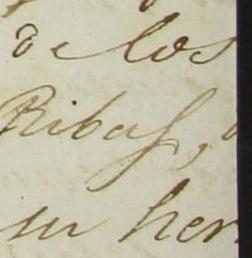 de los
Ribas,
su her